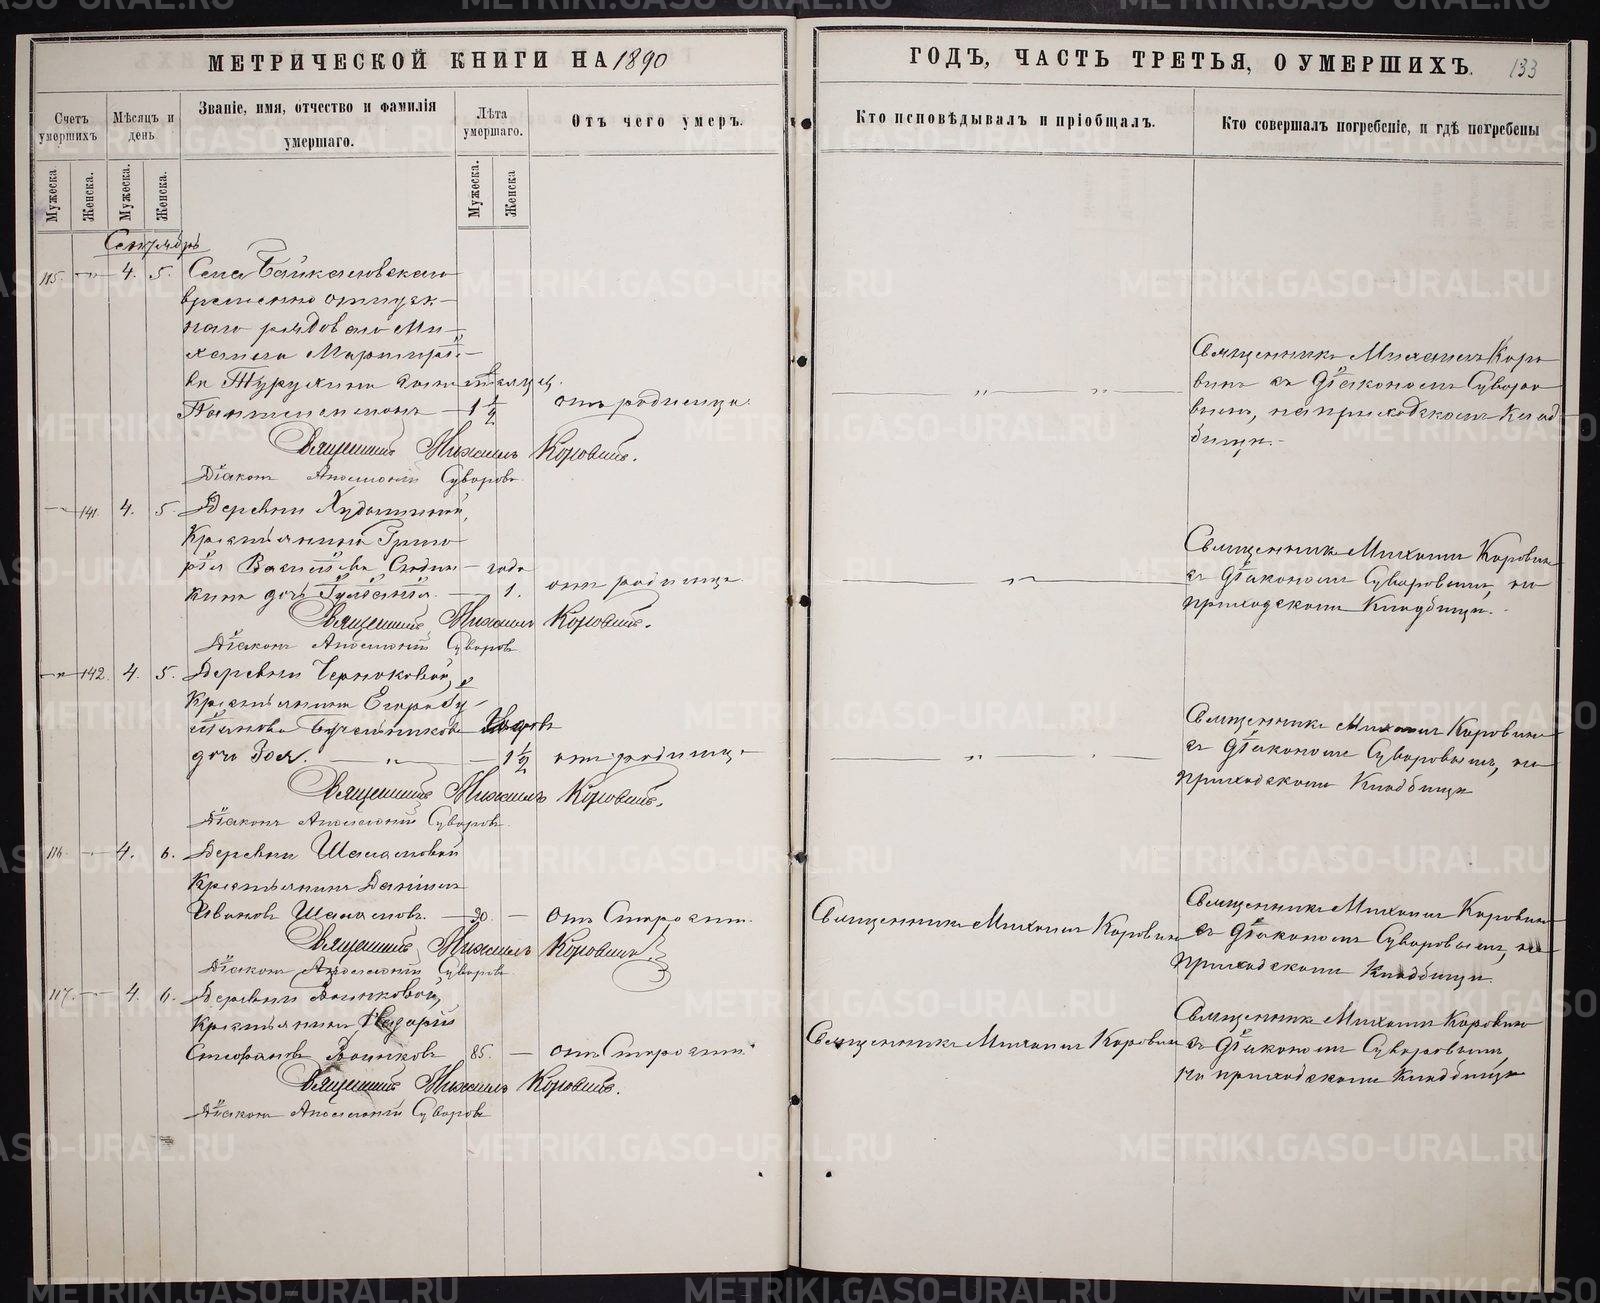 МЕТРИЧЕСКОЙ КНИГИ НА 1890
ГОДЪ, ЧАСТЬ ТРЕТЬЯ, О УМЕРШИХЪ. 133
Счетъ умершихъ
Мѣсяцъ и день
Званіе, имя, отчество и фамилія умершаго.
Лѣта умершаго.
Отъ чего умеръ.
Кто исповѣдывалъ и пріобщалъ.
Кто совершалъ погребеніе, и гдѣ погребены
Мужеска
Женска.
Мужеска.
Женска.
Мужеска.
Женска
Сентябрь
115. — 4. 5. Села Байкаловскаго
временно отпуск-
наго рядоваго Ми-
хаила
Турухина сынъ мѣсяц.
Пантелеимонъ — 1 1/2
отъ родимца.
Священникъ Михаилъ Коро
винъ съ Діакономъ Суворо
вымъ, на приходскомъ клад
бищѣ.
Священникъ Михаилъ Коровинъ.
Діаконъ Аполлоній Суворовъ
— 141. 4. 5. Деревни
Крестьянина Григо
рія Васильева
дочь — года
1. отъ родимца
Священникъ Михаилъ Коровинъ
съ Діакономъ Суворовымъ, на
приходскомъ Кладбищѣ.
Священникъ Михаилъ Коровинъ.
Діаконъ Аполлоній Суворовъ
— 142. 4. 5. Деревни
Крестьянина Егора
дочь Зоя. — 1 1/2 отъ родимца
Священникъ Михаилъ Коровинъ
съ Діакономъ Суворовымъ, на
приходскомъ Кладбищѣ
Священникъ Михаилъ Коровинъ.
Діаконъ Аполлоній Суворовъ
116. — 4. 6. Деревни Шаламовой
Крестьянинъ Даніилъ
Ивановъ Шаламовъ. — 90. — отъ Старости.
Священникъ Михаилъ Коровинъ
Священникъ Михаилъ Коровинъ
съ Діакономъ Суворовымъ, на
приходскомъ Кладбищѣ.
Священникъ Михаилъ Коровинъ.
Діаконъ Аполлоній Суворовъ
117. — 4. 6. Деревни Воинковой,
Крестьянинъ Назарій
Стефановъ Воинковъ 85. — отъ Старости.
Священникъ Михаилъ Коровинъ
Священникъ Михаилъ Коровинъ
съ Діакономъ Суворовымъ,
на приходскомъ Кладбищѣ
Священникъ Михаилъ Коровинъ.
Діаконъ Аполлоній Суворовъ
METRIKI.GASO-URAL.RU